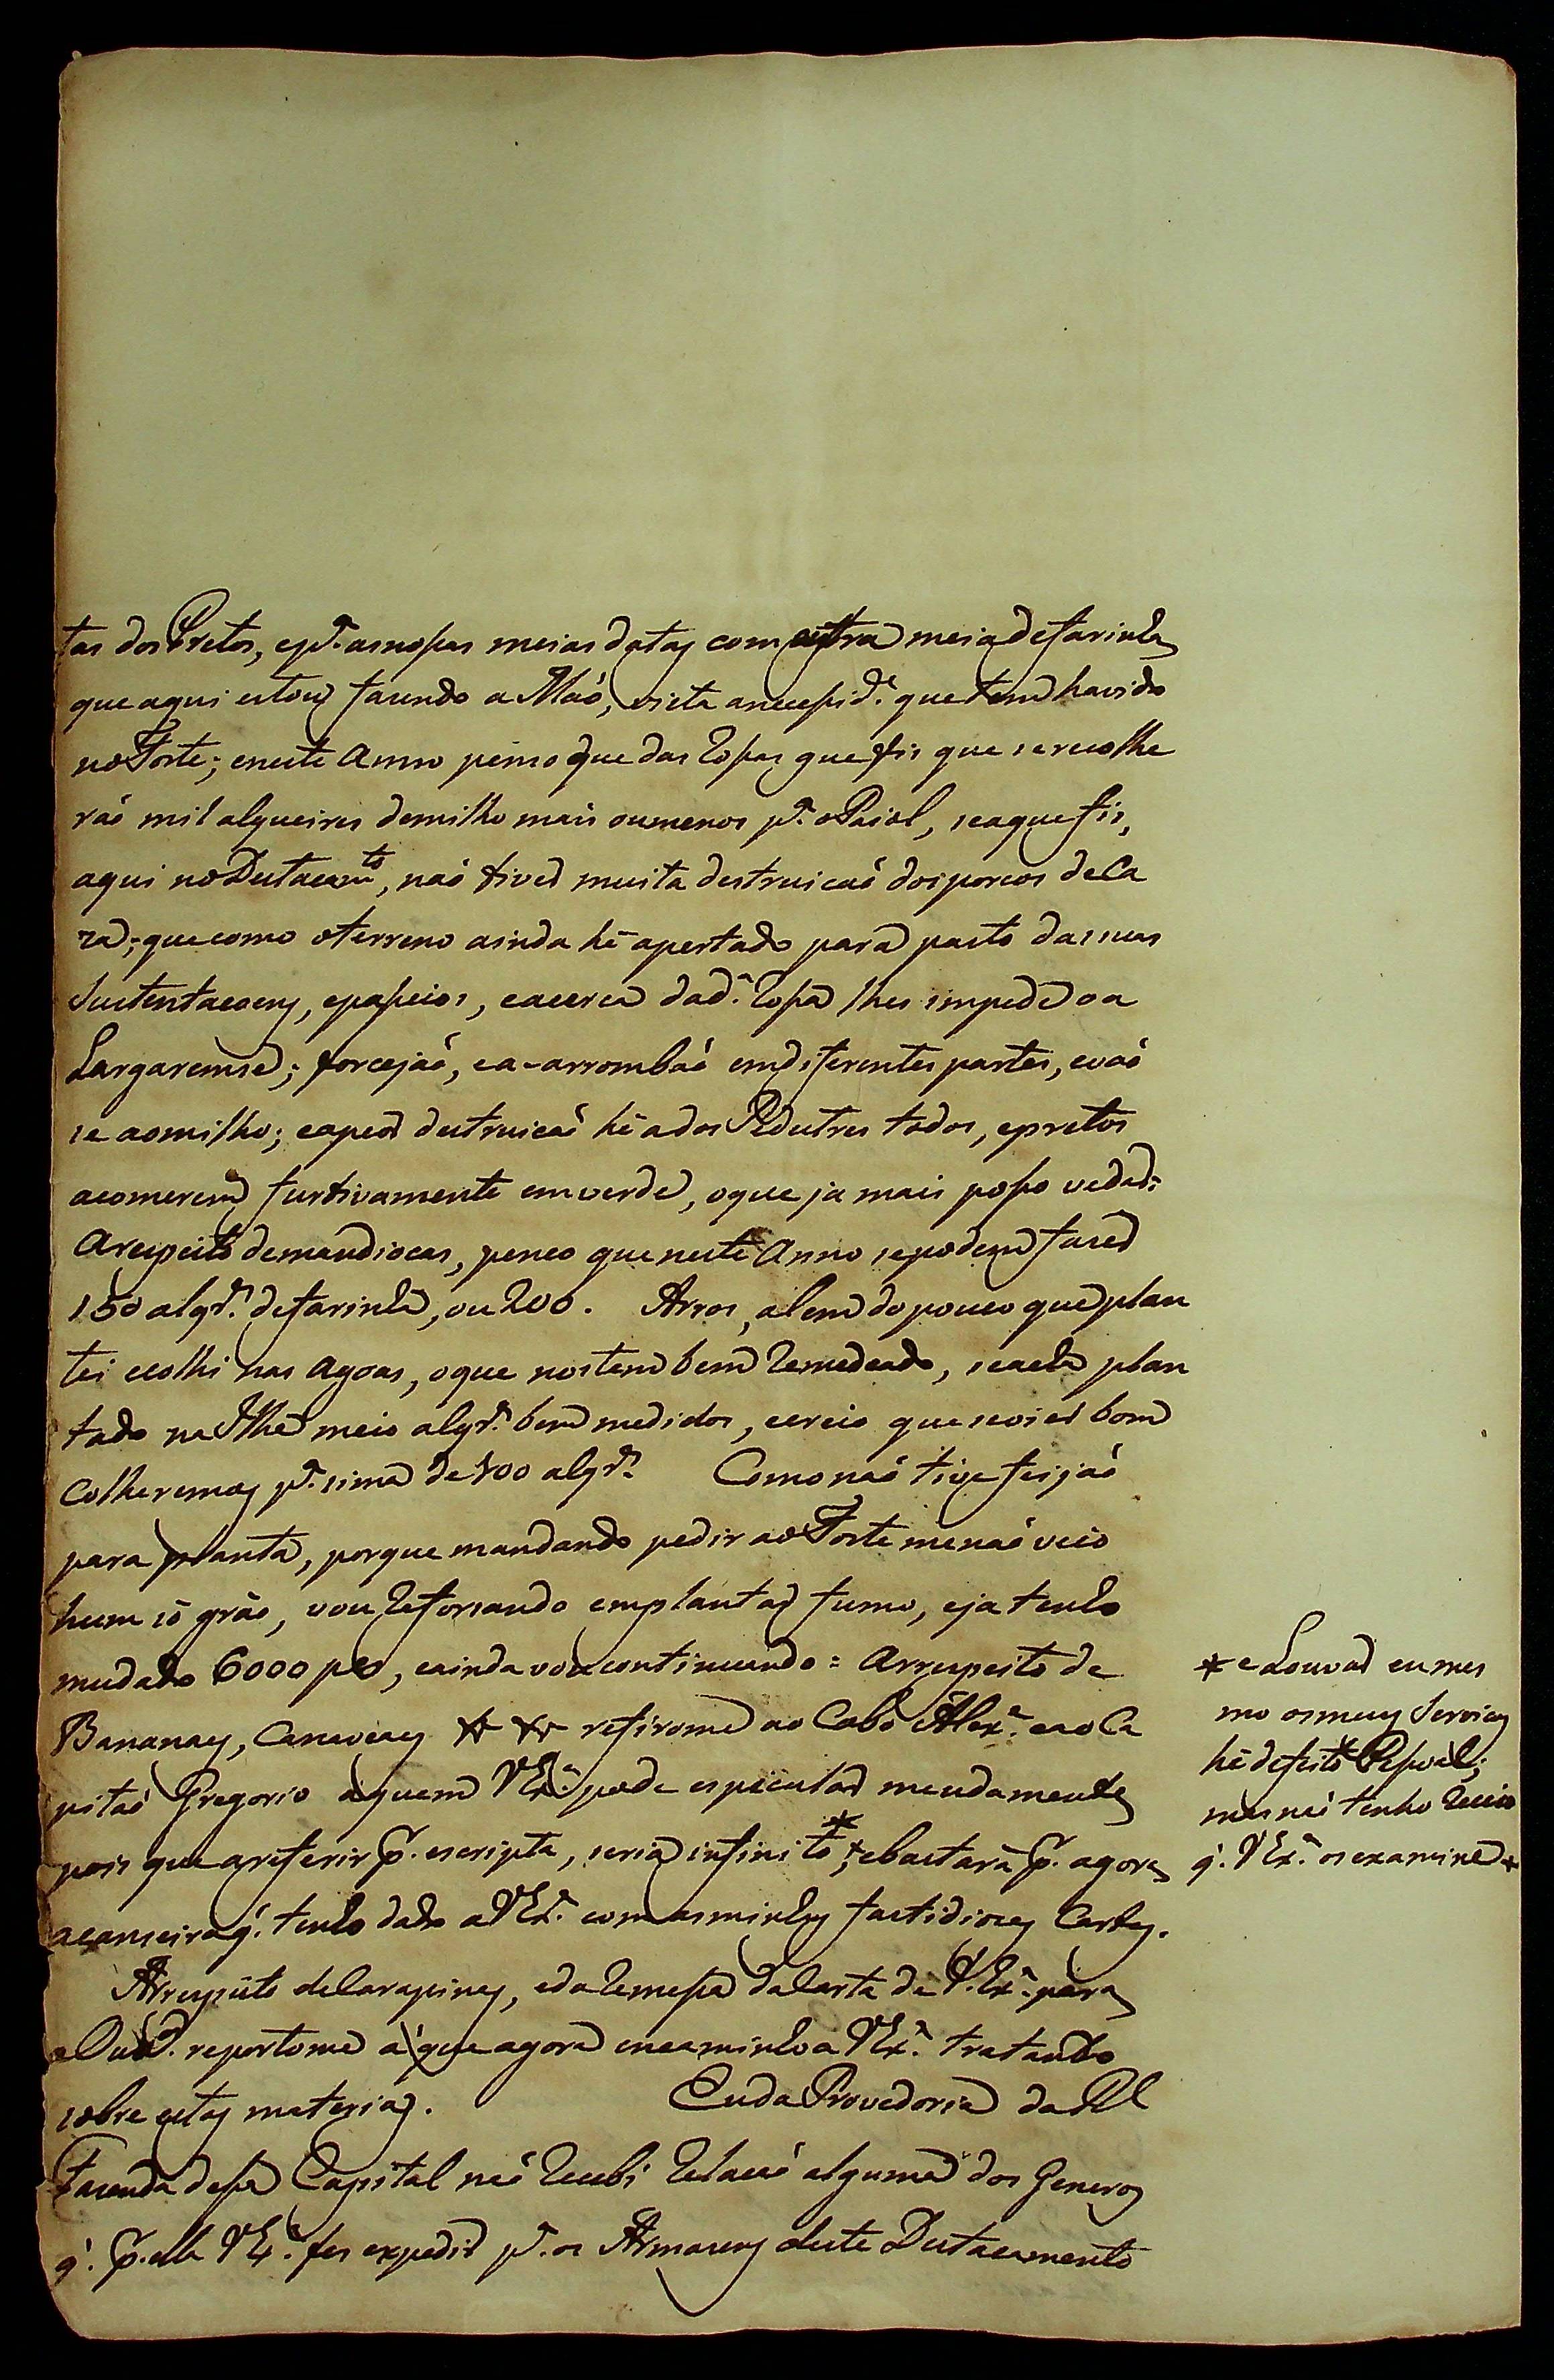 tas dos Pretos, e p.ª as nossas meias datas com outra meia de farinha
que aqui estou fasendo a Maó, vista a necessid.ᵉ que tem havido
no Forte; e neste Anno penso que das Rosas que fis que se recolhe
ráó mil alqueires de milho mais ou menos p.ª o Paiol, se a que fis,
aqui no Destacam.to, naó tiver muita destruicaó dos porcos de Ca
za; que como o terreno ainda hé apertado para pasto das suas
Sustentacoens, e passeios, e a cerca da d.ª Rosa lhes impede o a
Largaremse; forcejaó, e a-arrombaó em diferentes partes, e vaó
se ao milho; e a peor destruicaó hé a dos Pedestres todos, e pretos
a comerem furtivamente em verde, o que ja mais posso vedar:
A respeito de mandiocas, penço que neste Anno se podem faser
150 alqr.ˢ de farinha, ou 200. Arros, alem do pouco que plan
tei e colhi nas Agoas, o que nos tem bem Remedeado, se acha plan
tado na Ilha meio alqr.ᵉ bem medidos, e creio que se vier bom
Colheremos p.ª sima de 100 alqr.ˢ Como naó tive feijaó
para planta, porque mandando pedir ao Forte me naó veio
hum só gráo, vou Reforsando em plantar fumo, e ja tenho
mudado 6000 pés, e ainda vou continuando = Arrespeito de
Bananas, Canaveaes & & refirome ao Cabo Alex.ᵉ e ao Ca
pitaó Gregorio a quem V Ex.ª pode especular meudamente
pois que a referir p. escripta, seria infinito *; e bastará p. agora
a canseira q́. tenho dado a V Ex.ª com as minhas fastidiozas Cartas.
Arrespeito de Carapinas, e da Remessa da Carta de V. Ex.ª para
o Ouv.ᵒʳ reportome a que agora encaminho a V Ex.ª tratando
sobre estas materias. Eu da Provedoria da Rl
Fasenda dessa Capital naó Recebi Relacaó alguma dos Generos
q́. p. ella V Ex.ª fes expedir p.ª os Armasens deste Destacamento
* e Louvar eu mes
mo os meus Servicos
hé defeito Pessoal;
mas naó tenho Receio
q́. V Ex.ª os examine *